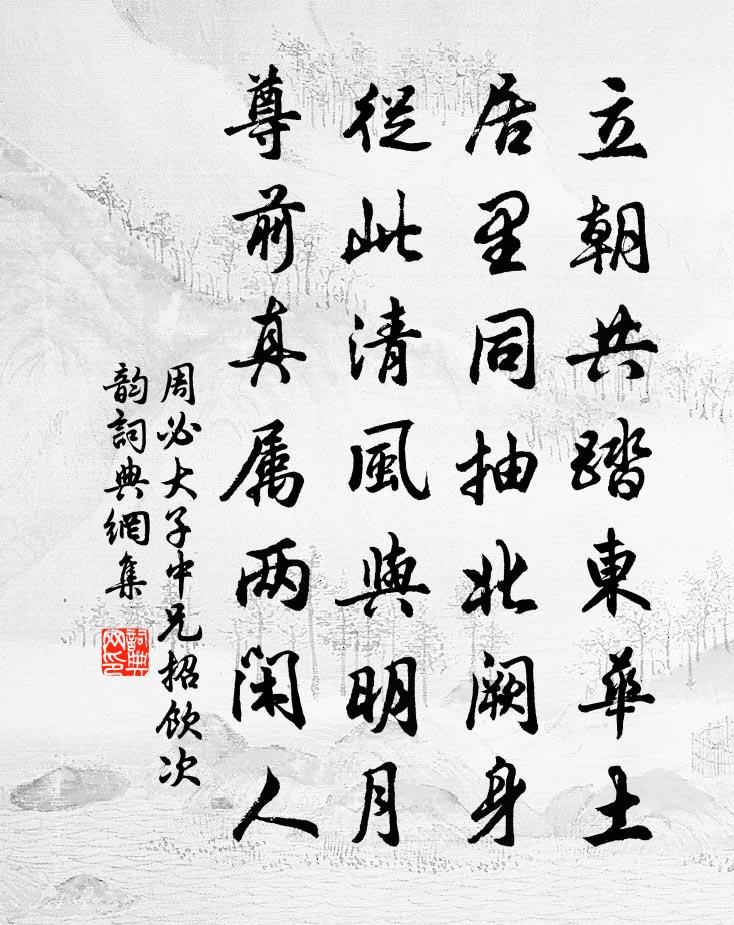 立朝共踏東華土
居里同抽北闕身
從此清風與明月
尊前真属两閑人
周必大子中兄招飲次
韵詞典網集
詞典